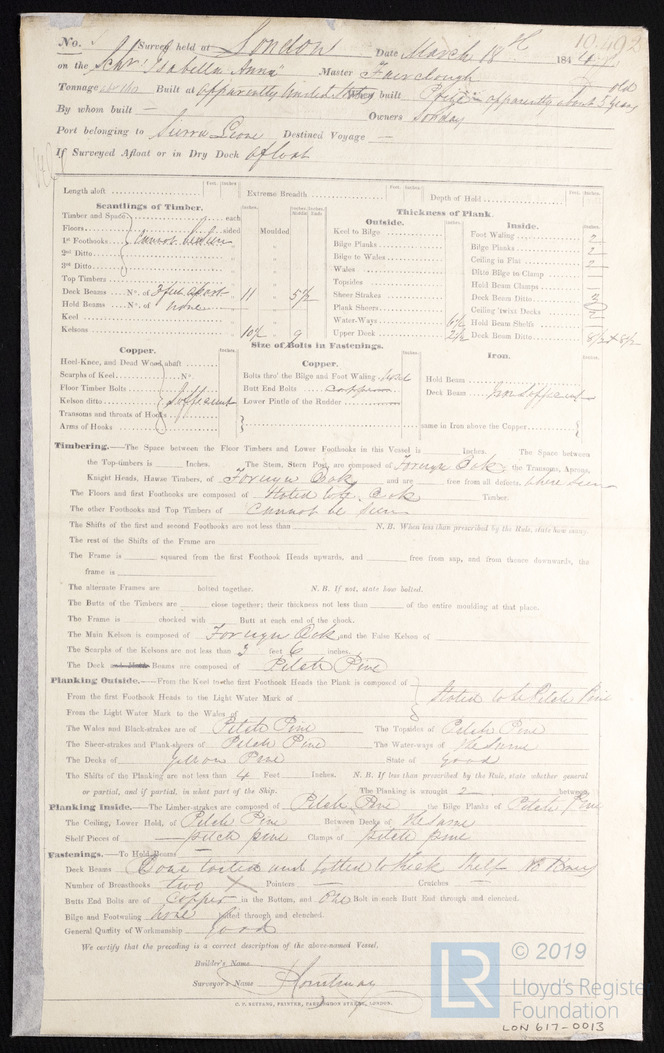 No. Survey held at London Date March 18th 184
10,492
on the Schr "Isabella Anna" Master Fairclough
Tonnage Built at apparently United States built apparently about 3 years old
By whom built — Owners
Port belonging to Sierra Leone Destined Voyage —
If Surveyed Afloat or in Dry Dock afloat
Feet. Inches. Feet. Inches. Feet. Inches.
Length aloft Extreme Breadth Depth of Hold
Scantlings of Timber.
Timber and Space each
Floors sided Moulded
1st Foothooks Cannot be seen
2nd Ditto
3rd Ditto
Top Timbers
Deck Beams No. of 3 feet apart 11 5½
Hold Beams No. of none
Keel
Kelsons 10½ 9
Thickness of Plank.
Outside.
Keel to Bilge
Bilge Planks
Bilge to Wales
Wales
Topsides
Sheer Strakes
Plank Sheers
Water-Ways 6½
Upper Deck 2½
Inside.
Foot Waling
Bilge Planks
Ceiling in Flat
Ditto Bilge to Clamp
Hold Beam Clamps
Deck Beam Ditto
Ceiling 'twixt Decks
Hold Beam Shelfs
Deck Beam Ditto 8½ x 8½
Size of Bolts in Fastenings.
Copper.
Heel-Knee, and Dead Wood abaft
Scarphs of Keel No.
Floor Timber Bolts
Kelson ditto Sufficient
Transoms and throats of Hooks
Arms of Hooks
Copper.
Bolts thro' the Bilge and Foot Waling none
Butt End Bolts copper
Lower Pintle of the Rudder
Iron.
Hold Beam
Deck Beam
same in Iron above the Copper
Timbering.—The Space between the Floor Timbers and Lower Foothooks in this Vessel is Inches. The Space between
the Top-timbers is Inches. The Stem, Stern Post, are composed of Foreign Oak, the Transoms, Aprons,
Knight Heads, Hawse Timbers, of Foreign Oak and are free from all defects. where seen
The Floors and first Foothooks are composed of Stated to be Oak Timber.
The other Foothooks and Top Timbers of cannot be seen
The Shifts of the first and second Foothooks are not less than N.B. When less than prescribed by the Rule, state how many.
The rest of the Shifts of the Frame are
The Frame is squared from the first Foothook Heads upwards, and free from sap, and from thence downwards, the
frame is
The alternate Frames are bolted together. N.B. If not, state how bolted.
The Butts of the Timbers are close together; their thickness not less than of the entire moulding at that place.
The Frame is chocked with Butt at each end of the chock.
The Main Kelson is composed of Foreign Oak and the False Kelson of
The Scarphs of the Kelsons are not less than 3 feet 6 inches.
The Deck and Hold Beams are composed of Pitch Pine
Planking Outside.—From the Keel to the first Foothook Heads the Plank is composed of
From the first Foothook Heads to the Light Water Mark of Stated to be Pitch Pine
From the Light Water Mark to the Wales of
The Wales and Black-strakes are of Pitch Pine The Topsides of Pitch Pine
The Sheer-strakes and Plank-sheers of Pitch Pine The Water-ways of the Same
The Decks of Yellow Pine State of Good
The Shifts of the Planking are not less than 4 Feet Inches. N.B. If less than prescribed by the Rule, state whether general
or partial, and if partial, in what part of the Ship. The Planking is wrought 2 between
Planking Inside.—The Limber-strakes are composed of Pitch Pine the Bilge Planks of Pitch Pine
The Ceiling, Lower Hold, of Pitch Pine Between Decks of the Same
Shelf Pieces of pitch pine Clamps of pitch pine
Fastenings.—To Hold Beams —
Deck Beams and bolted to thick Shelf No Knees
Number of Breasthooks two Pointers — Crutches —
Butts End Bolts are of Copper in the Bottom, and One Bolt in each Butt End through and clenched.
Bilge and Footwaling none bolted through and clenched.
General Quality of Workmanship Good
We certify that the preceding is a correct description of the above-named Vessel.
Builder's Name
Surveyor's Name
C. F. SEYFANG, PRINTER, FARRINGDON STREET, LONDON.
LR © 2019
Lloyd's Register
Foundation
LON 617-0013